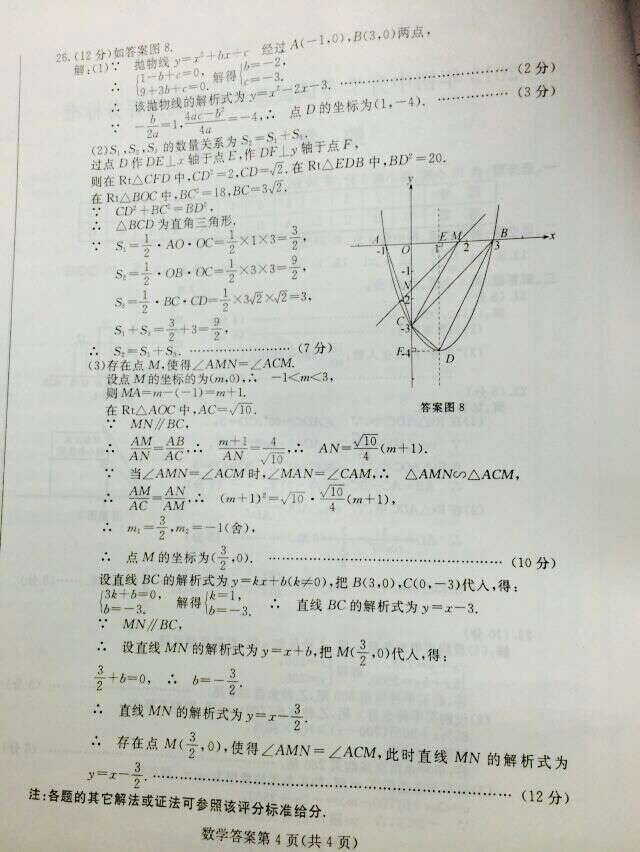 25.(12分)如答案图8.
解:(1)∵ 抛物线 y=x²+bx+c 经过 A(-1,0),B(3,0)两点,
∴ {1-b+c=0, 9+3b+c=0. 解得{b=-2, c=-3.
∴ 该抛物线的解析式为 y=x²-2x-3. ……………… (2分)
∵ -b/2a=1, (4ac-b²)/4a=-4,∴ 点 D 的坐标为(1,-4). ………… (3分)
(2)S₁,S₂,S₃ 的数量关系为 S₂=S₁+S₃.
过点 D 作 DE⊥x 轴于点 E,作 DF⊥y 轴于点 F,
则在 Rt△CFD 中,CD²=2,CD=√2. 在 Rt△EDB 中,BD²=20.
在 Rt△BOC 中,BC²=18,BC=3√2.
∵ CD²+BC²=BD²,
∴ △BCD 为直角三角形.
∵ S₁=1/2·AO·OC=1/2×1×3=3/2,
S₂=1/2·OB·OC=1/2×3×3=9/2,
S₃=1/2·BC·CD=1/2×3√2×√2=3,
S₁+S₃=3/2+3=9/2,
∴ S₂=S₁+S₃. ……………… (7分)
y
A O E M B x
-1 1 2 3
-1
N
-2
C -3
F -4 D
答案图 8
(3)存在点 M,使得∠AMN=∠ACM.
设点 M 的坐标的为(m,0),∴ -1<m<3,
则 MA=m-(-1)=m+1.
在 Rt△AOC 中,AC=√10.
∵ MN∥BC,
∴ AM/AN=AB/AC,∴ (m+1)/AN=4/√10,∴ AN=√10/4(m+1).
∵ 当∠AMN=∠ACM 时,∠MAN=∠CAM,∴ △AMN∽△ACM,
∴ AM/AC=AN/AM,∴ (m+1)²=√10·√10/4(m+1),
∴ m₁=3/2,m₂=-1(舍),
∴ 点 M 的坐标为(3/2,0). ……………… (10分)
设直线 BC 的解析式为 y=kx+b(k≠0),把 B(3,0),C(0,-3)代入,得:
{3k+b=0, b=-3. 解得{k=1, b=-3. ∴ 直线 BC 的解析式为 y=x-3.
∵ MN∥BC,
∴ 设直线 MN 的解析式为 y=x+b,把 M(3/2,0)代入,得:
3/2+b=0, ∴ b=-3/2.
∴ 直线 MN 的解析式为 y=x-3/2.
∴ 存在点 M(3/2,0),使得∠AMN=∠ACM,此时直线 MN 的解析式为
y=x-3/2. ……………… (12分)
注:各题的其它解法或证法可参照该评分标准给分.
数学答案第 4 页(共 4 页)